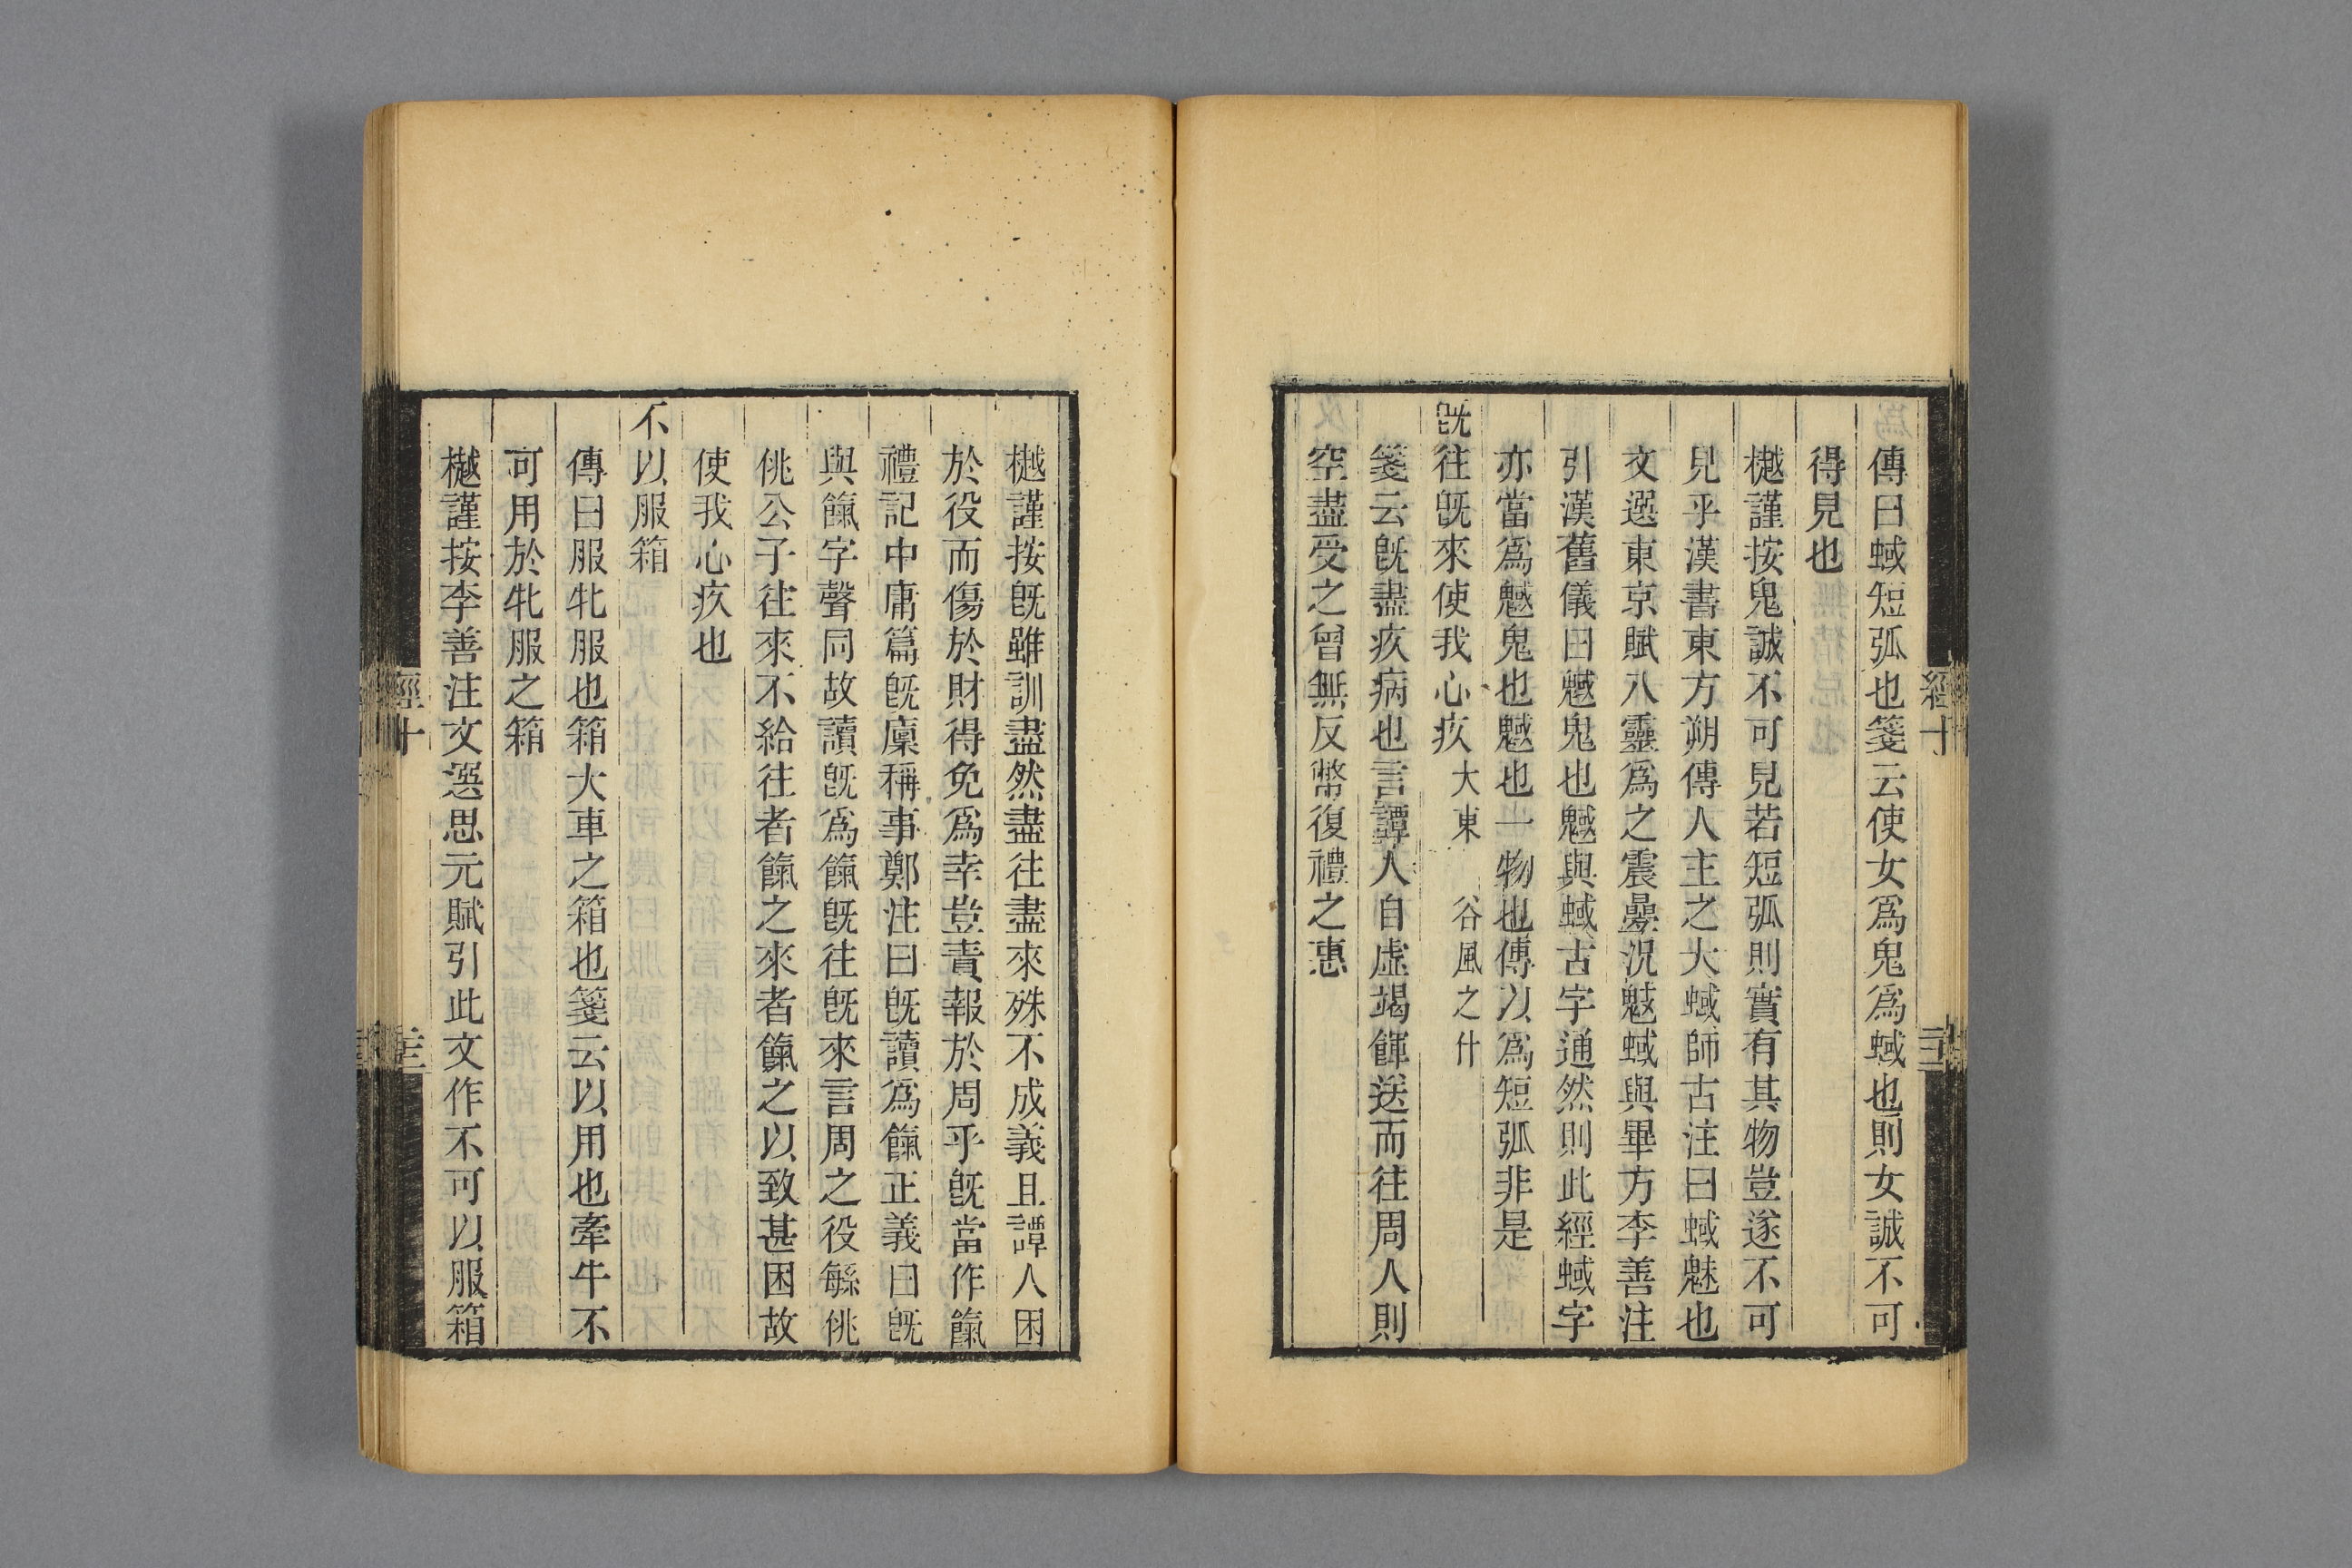 傳曰蜮短弧也箋云使女爲鬼爲蜮也則女誠不可
得見也
樾謹按鬼誠不可見若短弧則實有其物豈遂不可
見乎漢書東方朔傳人主之大蜮師古注曰蜮魅也
文選東京賦八靈爲之震曡況鬾蜮與畢方李善注
引漢舊儀曰魊鬼也魊與蜮古字通然則此經蜮字
亦當爲魊鬼也魊也一物也傳以爲短弧非是
旣往旣來使我心疚大東　谷風之什
箋云旣盡疚病也言譚人自虛竭餫送而往周人則
空盡受之曾無反幣復禮之惠
樾謹按旣雖訓盡然盡往盡來殊不成義且譚人困
於役而傷於財得免爲幸豈責報於周乎旣當作餼
禮記中庸篇旣廩稱事鄭注曰旣讀爲餼正義曰旣
與餼字聲同故讀旣爲餼旣往旣來言周之役緐佻
佻公子往來不給往者餼之來者餼之以致甚困故
使我心疚也
不以服箱
傳曰服牝服也箱大車之箱也箋云以用也牽牛不
可用於牝服之箱
樾謹按李善注文選思元賦引此文作不可以服箱
經十